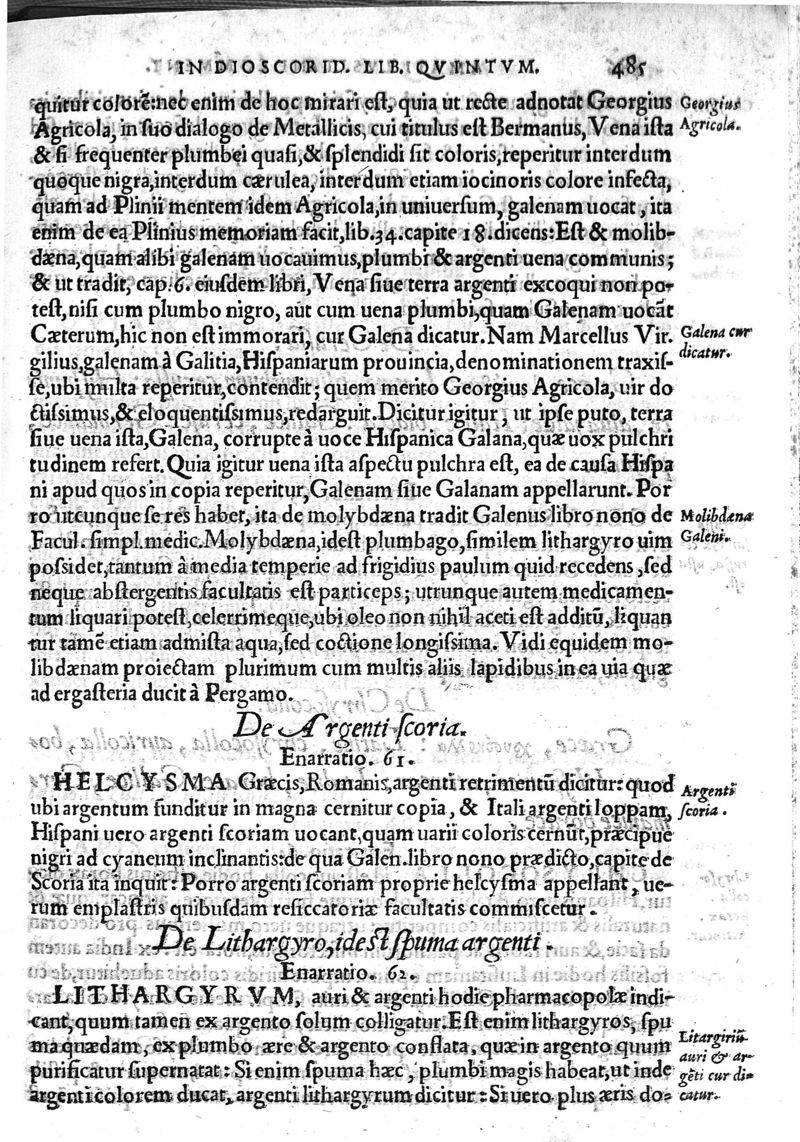 IN DIOSCORID. LIB. QVINTVM. 485
quitur colorẽ: nec enim de hoc mirari est, quia ut recte adnotat Georgius
Agricola, in suo dialogo de Metallicis, cui titulus est Bermanus, Vena ista
& si frequenter plumbei quasi, & splendidi sit coloris, reperitur interdum
quoque nigra, interdum cærulea, interdum etiam iocinoris colore infecta,
quam ad Plinii mentem idem Agricola, in uniuersum, galenam uocat, ita
enim de ea Plinius memoriam facit, lib. 34. capite 18. dicens: Est & molib-
dæna, quam alibi galenam uocauimus, plumbi & argenti uena communis;
& ut tradit, cap. 6. eiusdem libri, Vena siue terra argenti excoqui non po-
test, nisi cum plumbo nigro, aut cum uena plumbi, quam Galenam uocãt
Cæterum, hic non est immorari, cur Galena dicatur. Nam Marcellus Vir.
gilius, galenam à Galitia, Hispaniarum prouincia, denominationem traxis-
se, ubi multa reperitur, contendit; quem merito Georgius Agricola, uir do
ctissimus, & eloquentissimus, redarguit. Dicitur igitur, ut ipse puto, terra
siue uena ista, Galena, corrupte à uoce Hispanica Galana, quæ uox pulchri
tudinem refert. Quia igitur uena ista aspectu pulchra est, ea de causa Hispa
ni apud quos in copia reperitur, Galenam siue Galanam appellarunt. Por
ro utcunque se res habet, ita de molybdæna tradit Galenus libro nono de
Facul. simpl. medic. Molybdæna, idest plumbago, similem lithargyro uim
possidet, tantum à media temperie ad frigidius paulum quid recedens, sed
neque abstergentis facultatis est particeps; utrunque autem medicamen-
tum liquari potest, celerrimeque, ubi oleo non nihil aceti est additũ, liquan
tur tamẽ etiam admista aqua, sed coctione longissima. Vidi equidem mo-
libdænam proiectam plurimum cum multis aliis lapidibus in ea uia quæ
ad ergasteria ducit à Pergamo.
De Argenti scoria.
Enarratio. 61.
HELCYSMA Græcis, Romanis, argenti retrimentũ dicitur: quod
ubi argentum funditur in magna cernitur copia, & Itali argenti loppam,
Hispani uero argenti scoriam uocant, quam uarii coloris cernũt, præcipue
nigri ad cyaneum inclinantis: de qua Galen. libro nono prædicto, capite de
Scoria ita inquit: Porro argenti scoriam proprie helcysma appellant, ue-
rum emplastris quibusdam resiccatoriæ facultatis commiscetur.
De Lithargyro, idest spuma argenti.
Enarratio. 62.
LITHARGYRVM, auri & argenti hodie pharmacopolæ indi-
cant, quum tamen ex argento solum colligatur. Est enim lithargyros, spu
ma quædam, ex plumbo ære & argento conflata, quæ in argento quum
purificatur supernatat: Si enim spuma hæc, plumbi magis habeat, ut inde
argenti colorem ducat, argenti lithargyrum dicitur: Si uero plus æris do-
Georgius
Agricola.
Galena cur
dicatur.
Molibdæna
Galeni.
Argenti
scoria.
Litargiriũ
auri & ar-
gẽti cur di-
catur.